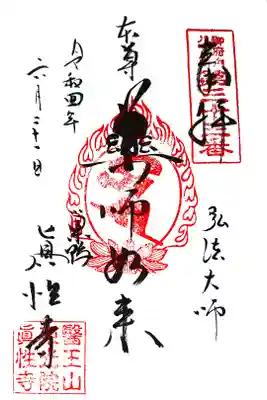 奉拝
弘法大師
本尊
薬師如来
巣鴨
真性寺
令和四年
六月二十一日
醫王山
眞性寺